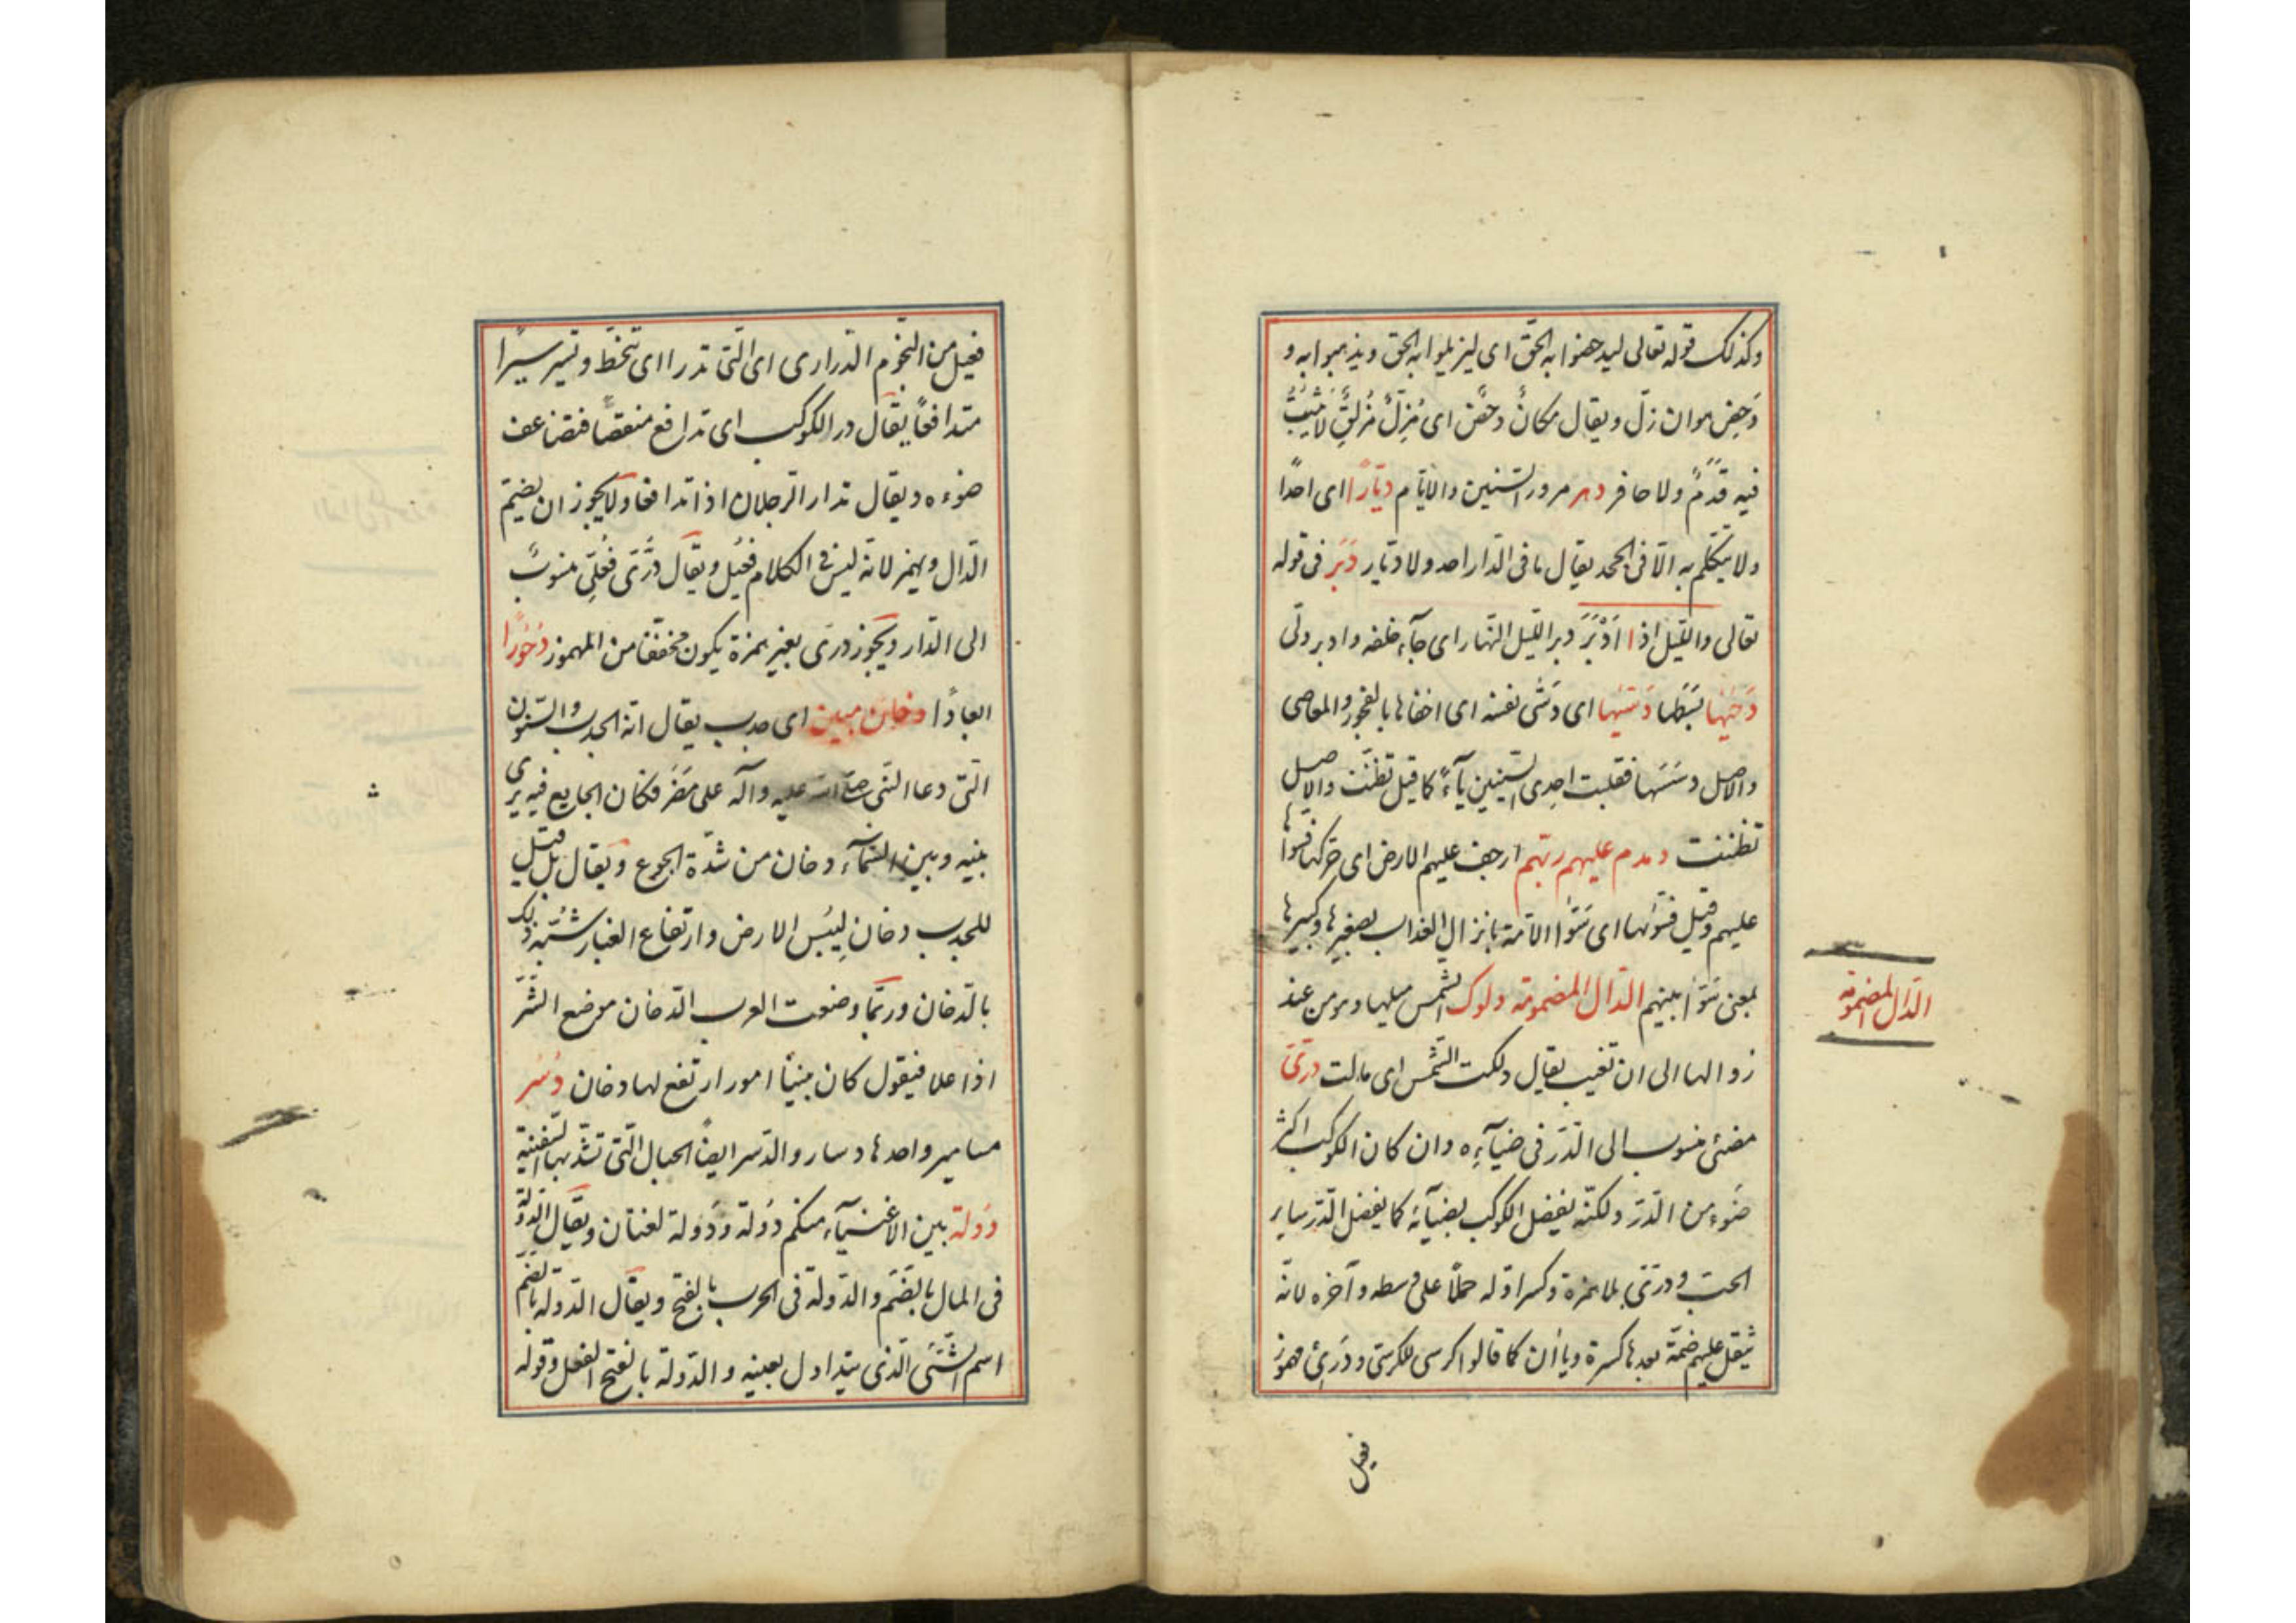 وكذلك قوله تعالى ليدحضوا به الحق اى ليزيلوا به الحق ويذهبوا به و
دَحِض هو ان زلّ ويقال مكانٌ دحضٌ اى مُزِلٌّ مُزلِقٌ لا يثبتُ
فيه قَدَمٌ ولا حافر دهر مرور السّنين والايّام ديّارًا اى احدًا
ولا يتكلّم به الّا فى الجحد يقال ما فى الدّار احد ولا ديّار دَبَر فى قوله
تعالى واللّيل اذا اَدْبَرَ دبر اللّيل النّهار اى جآء خلفه وادبر ولّى
دَحٰيها بَسَطَها دَسّٰيها اى دَسّٰى نفسه اى اخفاها بالفجور والمعاصى
والاصل دسّسَها فقلبت احدى السّينين يآءً كما قيل تظنّيت والاصل
تظنّنت دمدم عليهم ربّهم ارجف عليهم الارض اى حرّكها فسوّاها
عليهم وقيل فسوّٰها اى سَوّٰا الامّة بانزال العذاب بصغيرها وكبيرها
بمعنى سَوّٰا بينهم الدّال المضمومة دلوك الشّمس ميلها وهو من عند
زوالها الى ان تغيب يقال دلكت الشّمس اى مالت درّىّ
مضئ منسوب الى الدّرّ فى ضيآءِه وان كان الكوكب اكثر
ضوء من الدّرّ ولكنّه يفضل الكوكب بضيآئه كما يفضل الدّرّ ساير
الحبّ ودرّىّ بلا همزة وكسر اوّله حملًا على وسطه وآخره لانّه
يثقل عليهم ضمّة بعدها كسرة وياأن كما قالوا كرسى للكرسىّ ودرّئ مهموز
الدّال المضمومة
فعيل
فعيل من النّجوم الدّرارى اى الّتى تدرا اى تنحطّ وتسير سيرًا
متدافعًا يقال درا الكوكب اى تدافع منقضًّا فتضاعف
ضوءه ويقال تدارا الرّجلان اذا تدافعا ولا يجوز ان يضمّ
الدّال ويهمز لانّه ليس فى الكلام فُعّيل ويقال دُرّىّ فُعْلىّ منسوبٌ
الى الدّار ويجوز درّى بغير همزة يكون مخفّفًا من المهموز دُحُورًا
ابعادًا دخان مبين اى جدب يقال انّه الجدب والسّنون
الّتى دعا النّبى صلّى الله عليه وآله على مُضَر فكان الجايع فيه يرى
بينه وبين السّمآء دخان من شدّة الجوع ويقال بل قيل
للجدب دخان لِيُبْسِ الارض وارتفاع الغبار شُبّه ذلك
بالدّخان وربّما وضعت العرب الدّخان موضع الشّرّ
اذا علا فيقول كان بينناً امور ارتفع لها دخان دُسُر
مسامير واحدها دسار والدّسر ايضًا الحبال الّتى تشدّ بها السّفينة
دُولة بين الاغنيآء منكم دُولة ودَولة لغتان ويقال الدّولة
فى المال بالضّم والدّولة فى الحرب بالفتح ويقال الدّولة بالضّم
اسم الشّئ الّذى يتداول بعينه والدّولة بالفتح الفعل وقوله